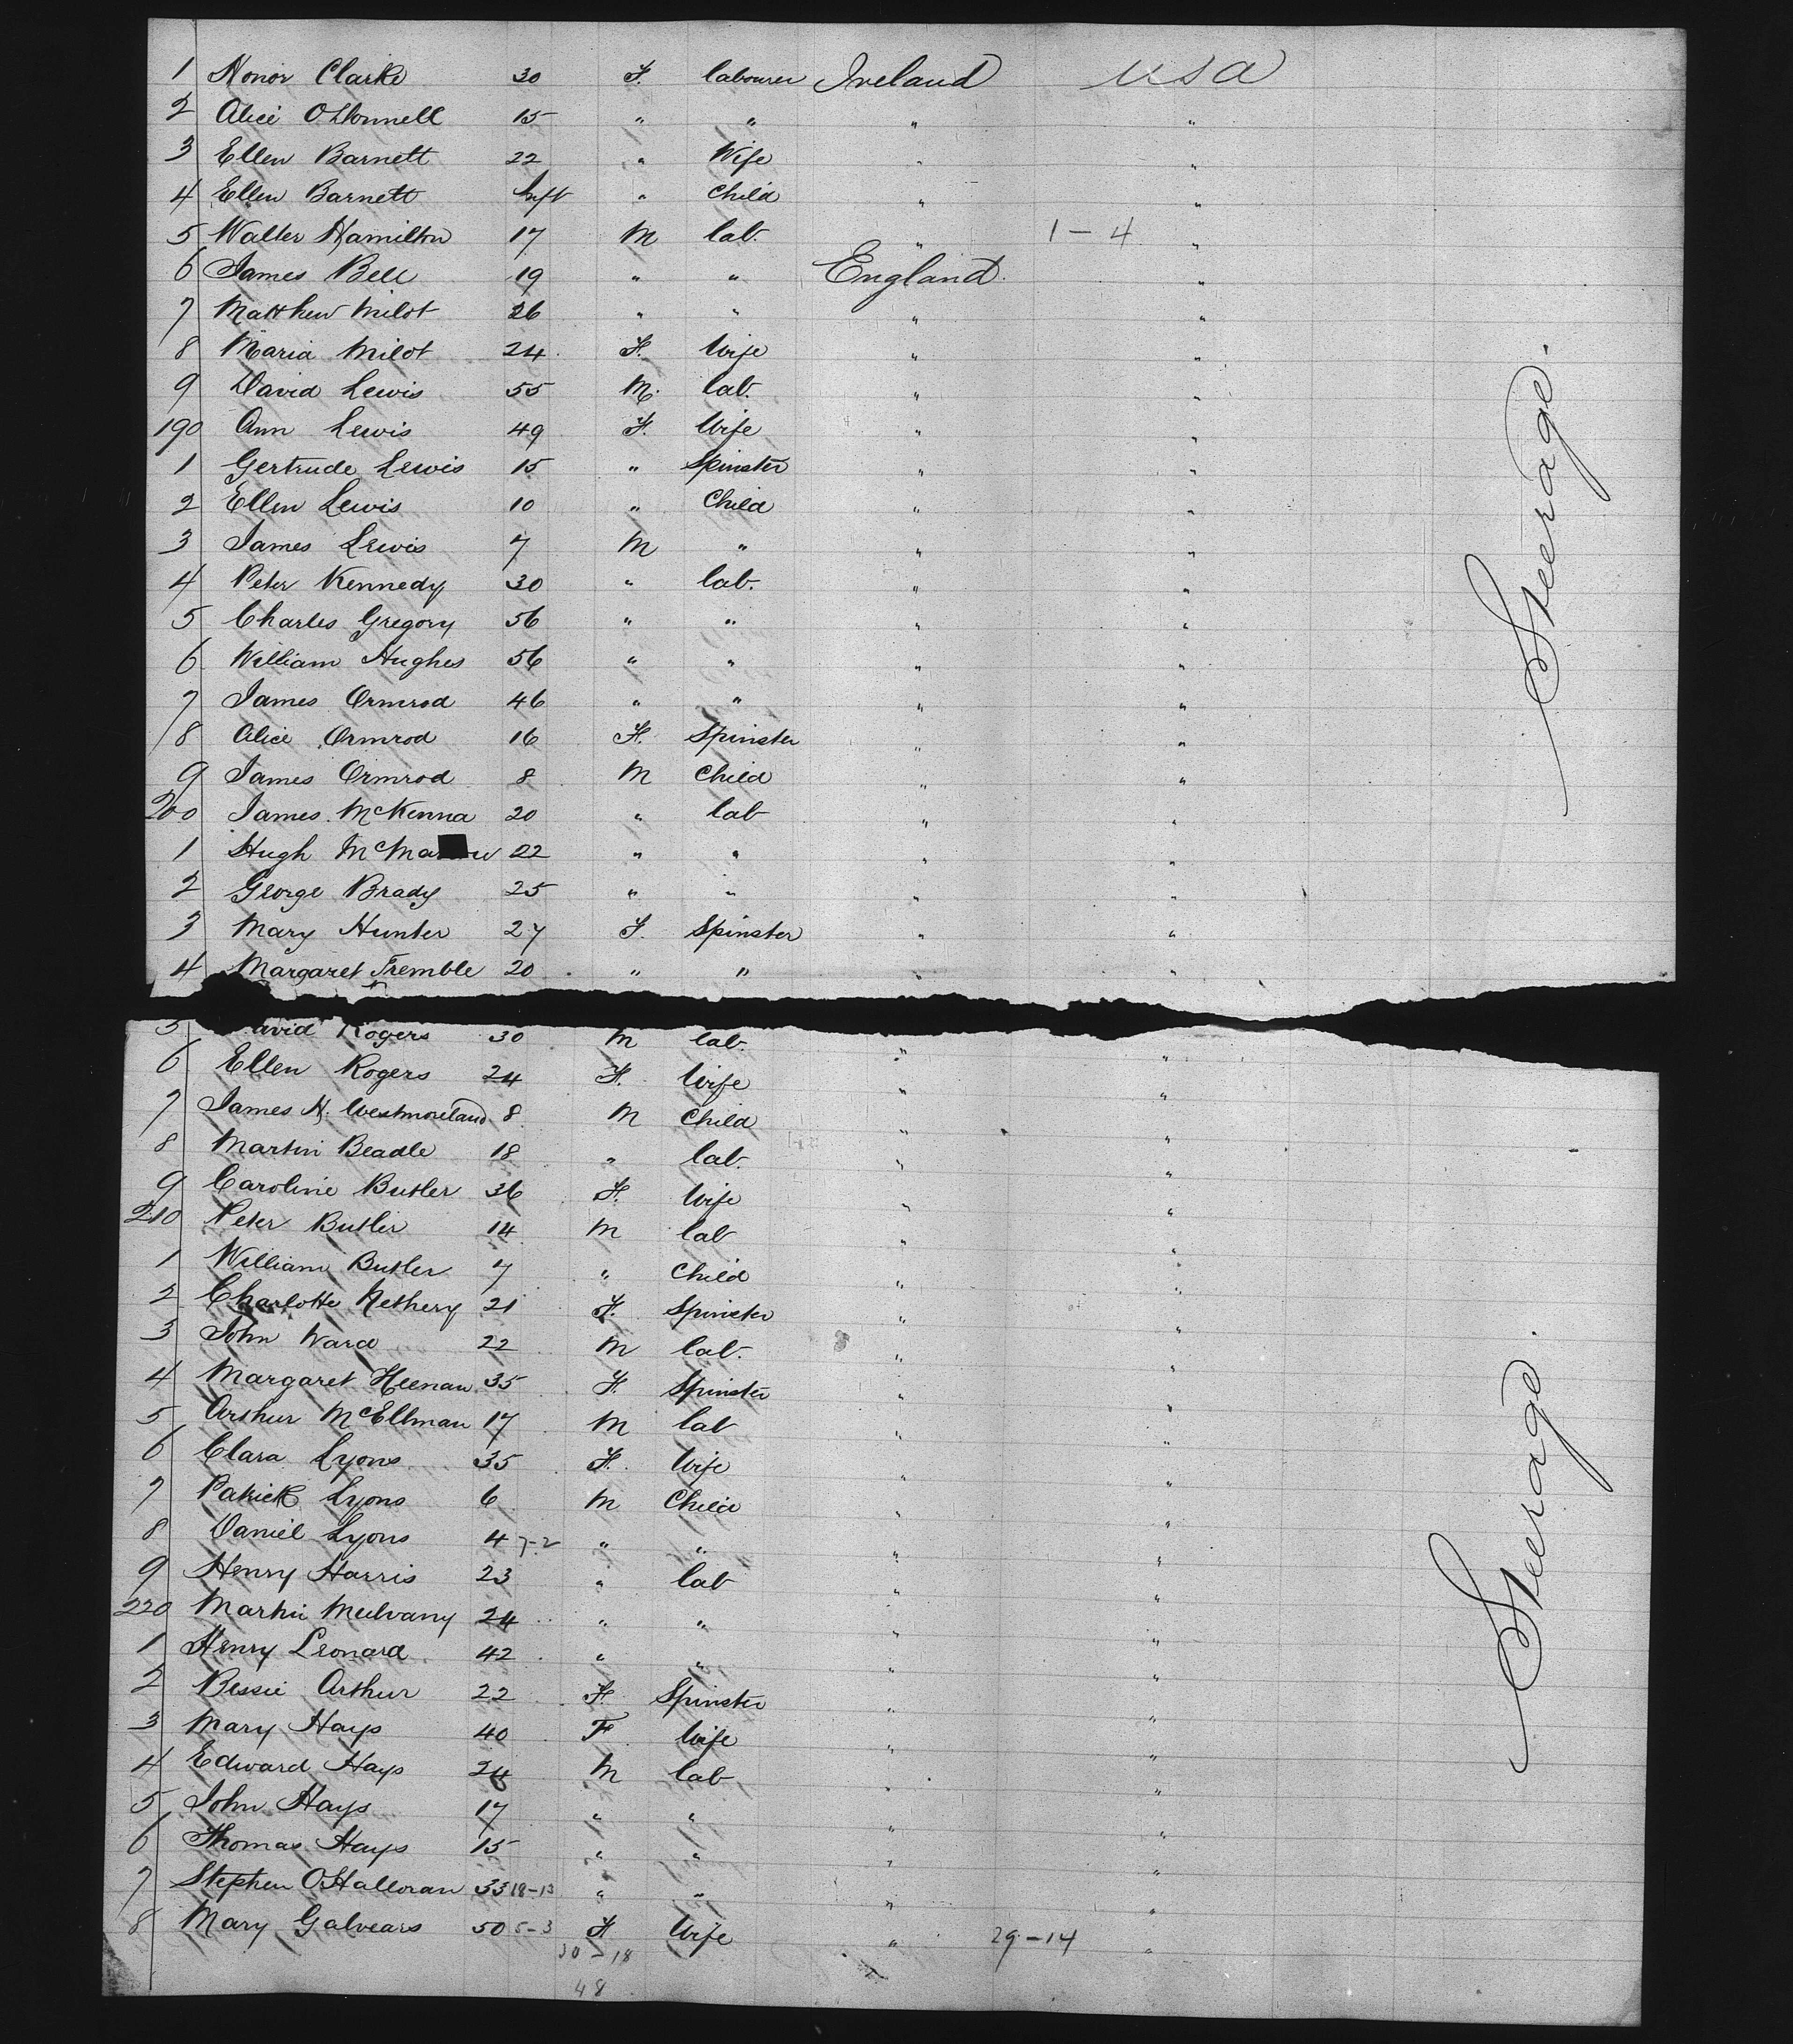 1 Honor Clarke 30 F. labourer Ireland USA
2 Alice O'Donnell 15 " " " "
3 Ellen Barnett 22 " Wife " "
4 Ellen Barnett Inft " Child " "
5 Walter Hamilton 17 M lab. " 1-4 "
6 James Bell 19 " " England "
7 Matthew Milot 26 " " " "
8 Maria Milot 24 F. Wife " "
9 David Lewis 55 M. lab. " "
190 Ann Lewis 49 F. Wife " "
1 Gertrude Lewis 15 " Spinster " "
2 Ellen Lewis 10 " Child " "
3 James Lewis 7 M " " "
4 Peter Kennedy 30 " lab. " "
5 Charles Gregory 56 " " " "
6 William Hughes 56 " " " "
7 James Ormrod 46 " " " "
8 Alice Ormrod 16 F. Spinster " "
9 James Ormrod 8 M Child " "
200 James McKenna 20 " lab " "
1 Hugh 22 " " " "
2 George Brady 25 " " " "
3 Mary Hunter 27 F. Spinster " "
4 Margaret Tremble 20 " " " "
Steerage.
5 David Rogers 30 M lab. " "
6 Ellen Rogers 24 F. Wife " "
7 James H. Westmoreland 8 M Child " "
8 Martin Beadle 18 " lab. " "
9 Caroline Butler 36 F. Wife " "
210 Peter Butler 14 M lab " "
1 William Butler 7 " Child " "
2 Charlotte Nethery 21 F. Spinster " "
3 John Ward 22 M lab. " "
4 Margaret Heenan 35 F. Spinster " "
5 Arthur McEllman 17 M lab " "
6 Clara Lyons 35 F. Wife " "
7 Patrick Lyons 6 M Child " "
8 Daniel Lyons 4 7-2 " " " "
9 Henry Harris 23 " lab " "
220 Martin Mulvany 24 " " " "
1 Henry Leonard 42 " " " "
2 Bessie Arthur 22 F. Spinster " "
3 Mary Hays 40 F Wife " "
4 Edward Hays M lab " "
5 John Hays 17 " " " "
6 Thomas Hays 15 " " " "
7 Stephen O'Halloran 33 18-13 " " " "
8 Mary Galvears 50 5-3 F Wife " 29-14 "
30-18
48
Steerage.